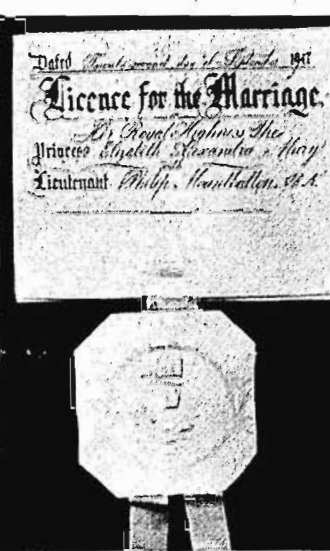 Dated Twenty second day of September 1947
Licence for the Marriage,
Her Royal Highness The
Princess Elizabeth Alexandra Mary
Lieutenant Philip Mountbatten, R.N.